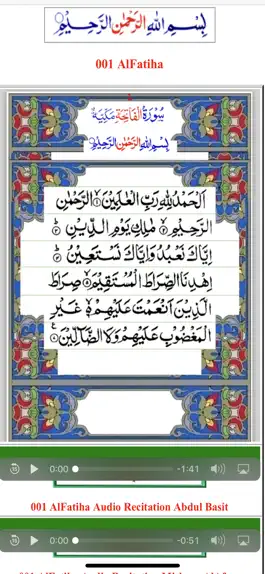 بِسْمِ اللهِ الرَّحْمٰنِ الرَّحِيْمِ
001 AlFatiha
سُوْرَةُ الْفَاتِحَةِ مَكِّيَّةٌ
بِسْمِ اللهِ الرَّحْمٰنِ الرَّحِيْمِ
اَلْحَمْدُ لِلّٰهِ رَبِّ الْعٰلَمِيْنَ ۙ﴿۱﴾ الرَّحْمٰنِ
الرَّحِيْمِ ۙ﴿۲﴾ مٰلِكِ يَوْمِ الدِّيْنِ ؕ﴿۳﴾
اِيَّاكَ نَعْبُدُ وَاِيَّاكَ نَسْتَعِيْنُ ؕ﴿۴﴾
اِهْدِنَا الصِّرَاطَ الْمُسْتَقِيْمَ ۙ﴿۵﴾ صِرَاطَ
الَّذِيْنَ اَنْعَمْتَ عَلَيْهِمْ ۙ۬ۦ﴿۶﴾ غَيْرِ
الْمَغْضُوْبِ عَلَيْهِمْ وَلَا الضَّآلِّيْنَ ﴿۷﴾
15 0:00 -1:41
001 AlFatiha Audio Recitation Abdul Basit
15 0:00 -0:51